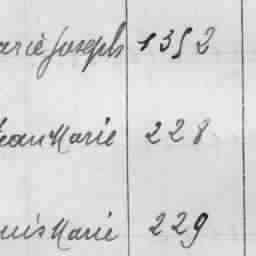 arie Joseph 1352
Jean Marie 228
ouis Marie 229